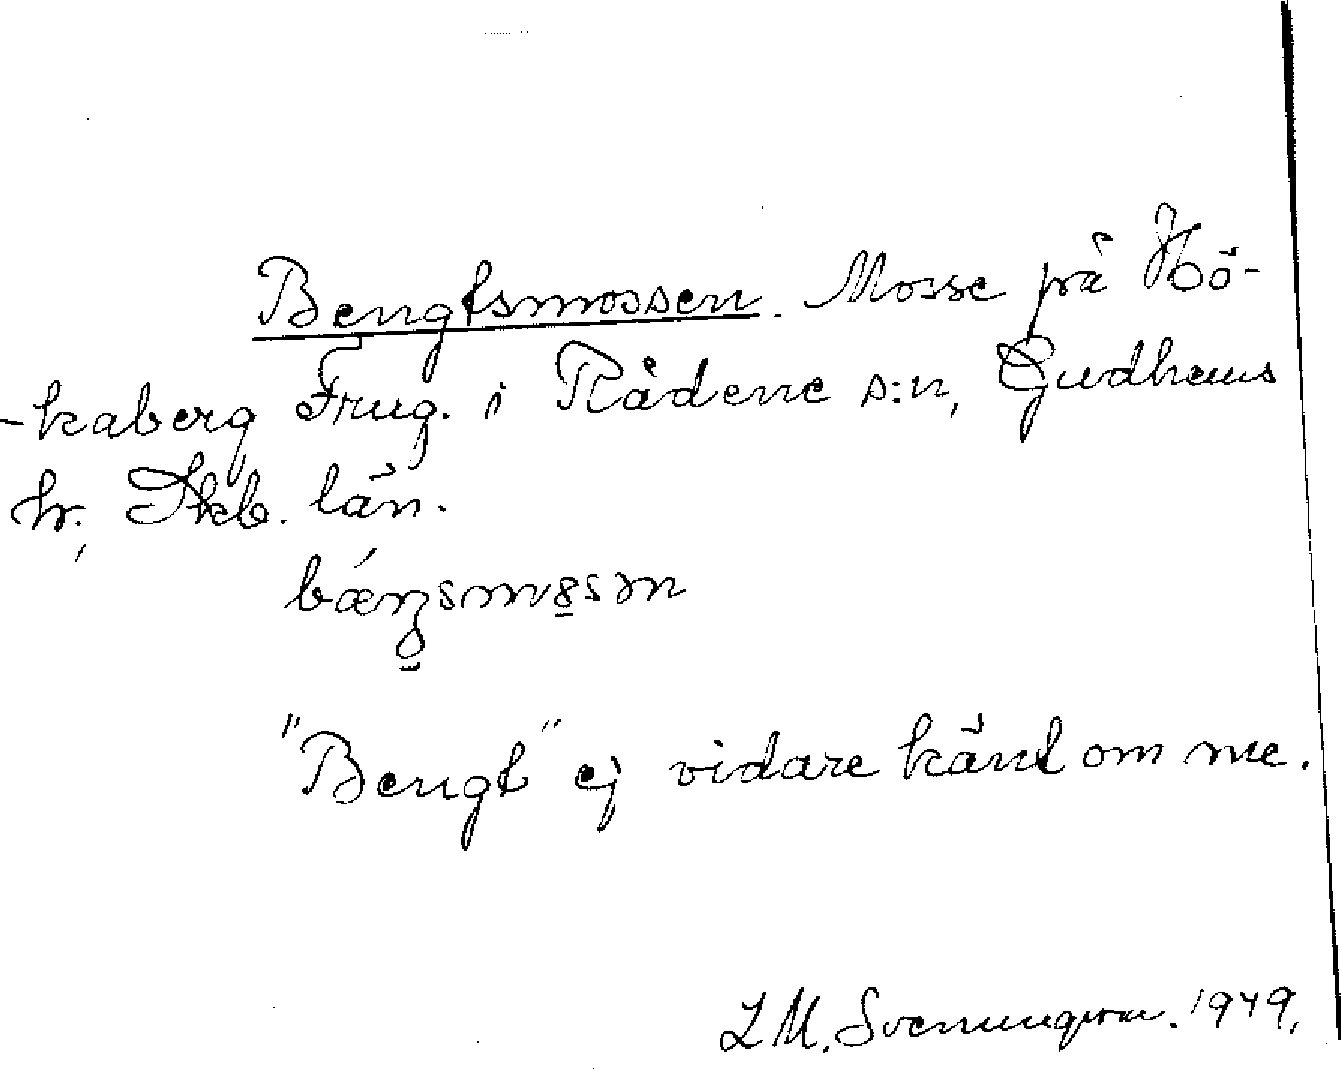 Bengtsmossen. Mosse på Hö-
-kaberg Frug. i Rådene s:n, Gudhems
hr, Skb. län.
"Bengt" ej vidare känt om me.
L M. Svenungsson. 1949.